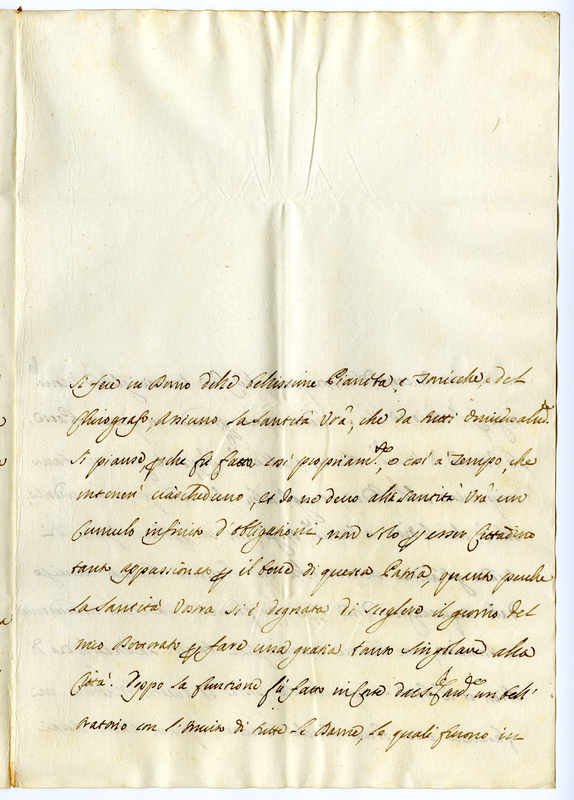 si fece in Dono delle bellissime Pianeta, e Tonicelle, e del
Chirografo; Assicuro la Santità Vrã, che da tutti
si pianse, che fù fatto così propriam.te, e così à Tempo, che
intenerì ciascheduno, et Io ne devo alla Santità Vrã un
Cumulo infinito d'obligationi, non solo p esser Cittadino
tanto appassionato p il bene di questa Patria, quanto perche
la Santità Vostra si è degnata di scegliere il giorno del
mio p fare una gratia tanto singolare alla
Città. Doppo la funtione fù fatto in un bell'
oratorio con l'Invito di tutte le Dame, le quali furono in